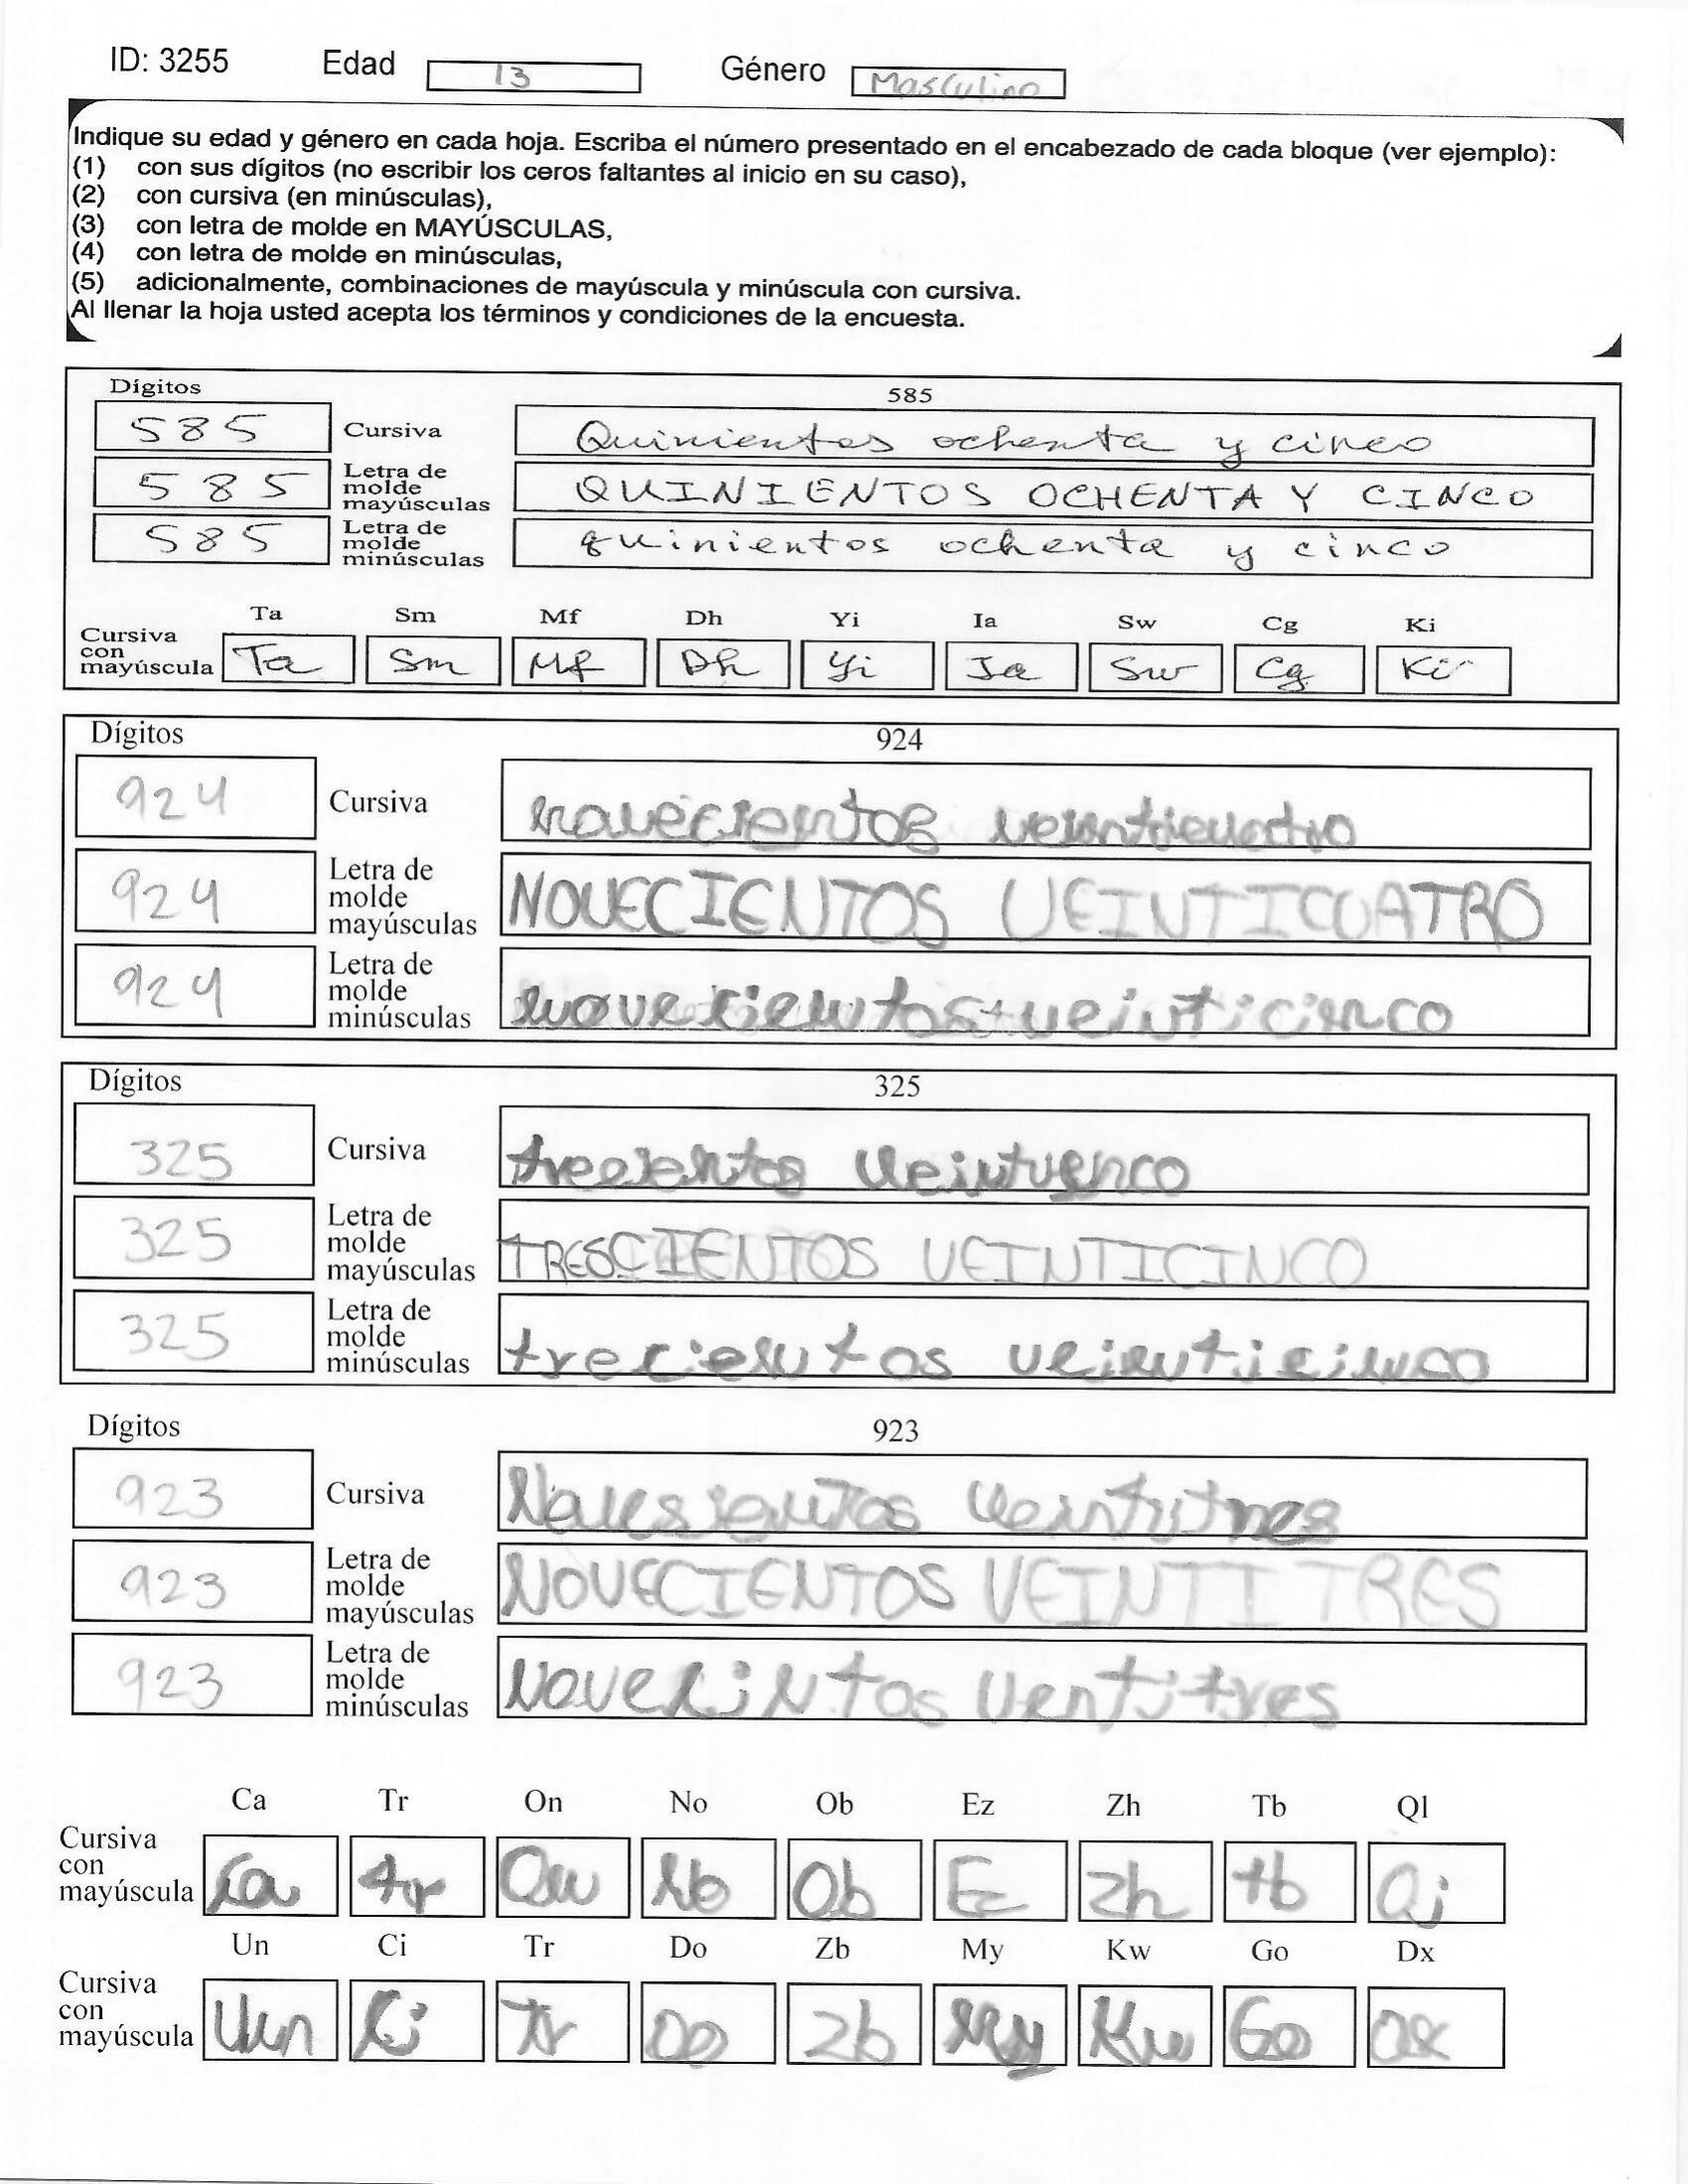 ID: 3255 Edad 13 Género Masculino
Indique su edad y género en cada hoja. Escriba el número presentado en el encabezado de cada bloque (ver ejemplo):
(1) con sus dígitos (no escribir los ceros faltantes al inicio en su caso),
(2) con cursiva (en minúsculas),
(3) con letra de molde en MAYÚSCULAS,
(4) con letra de molde en minúsculas,
(5) adicionalmente, combinaciones de mayúscula y minúscula con cursiva.
Al llenar la hoja usted acepta los términos y condiciones de la encuesta.
Dígitos 585
585 Cursiva Quinientos ochenta y cinco
585 Letra de molde mayúsculas QUINIENTOS OCHENTA Y CINCO
585 Letra de molde minúsculas quinientos ochenta y cinco
Ta Sm Mf Dh Yi Ia Sw Cg Ki
Cursiva con mayúscula Ta Sm Mf Dh Yi Ia Sw Cg Ki
Dígitos 924
924 Cursiva novecientos veinticuatro
924 Letra de molde mayúsculas NOVECIENTOS VEINTICUATRO
924 Letra de molde minúsculas novecientos veinticinco
Dígitos 325
325 Cursiva
325 Letra de molde mayúsculas TRESCIENTOS VEINTICINCO
325 Letra de molde minúsculas trecientos veinticinco
Dígitos 923
923 Cursiva Novesientos
923 Letra de molde mayúsculas NOVECIENTOS VEINTITRES
923 Letra de molde minúsculas Novecintos Ventitres
Ca Tr On No Ob Ez Zh Tb Ql
Cursiva con mayúscula Ca tr On No Ob Ez Zh tb Qj
Un Ci Tr Do Zb My Kw Go Dx
Cursiva con mayúscula Un Ci Tr Do Zb My Kw Go Dx